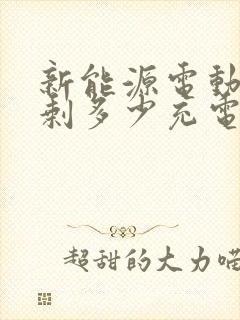 新能源電動
剩多少充電
超甜的大力喵